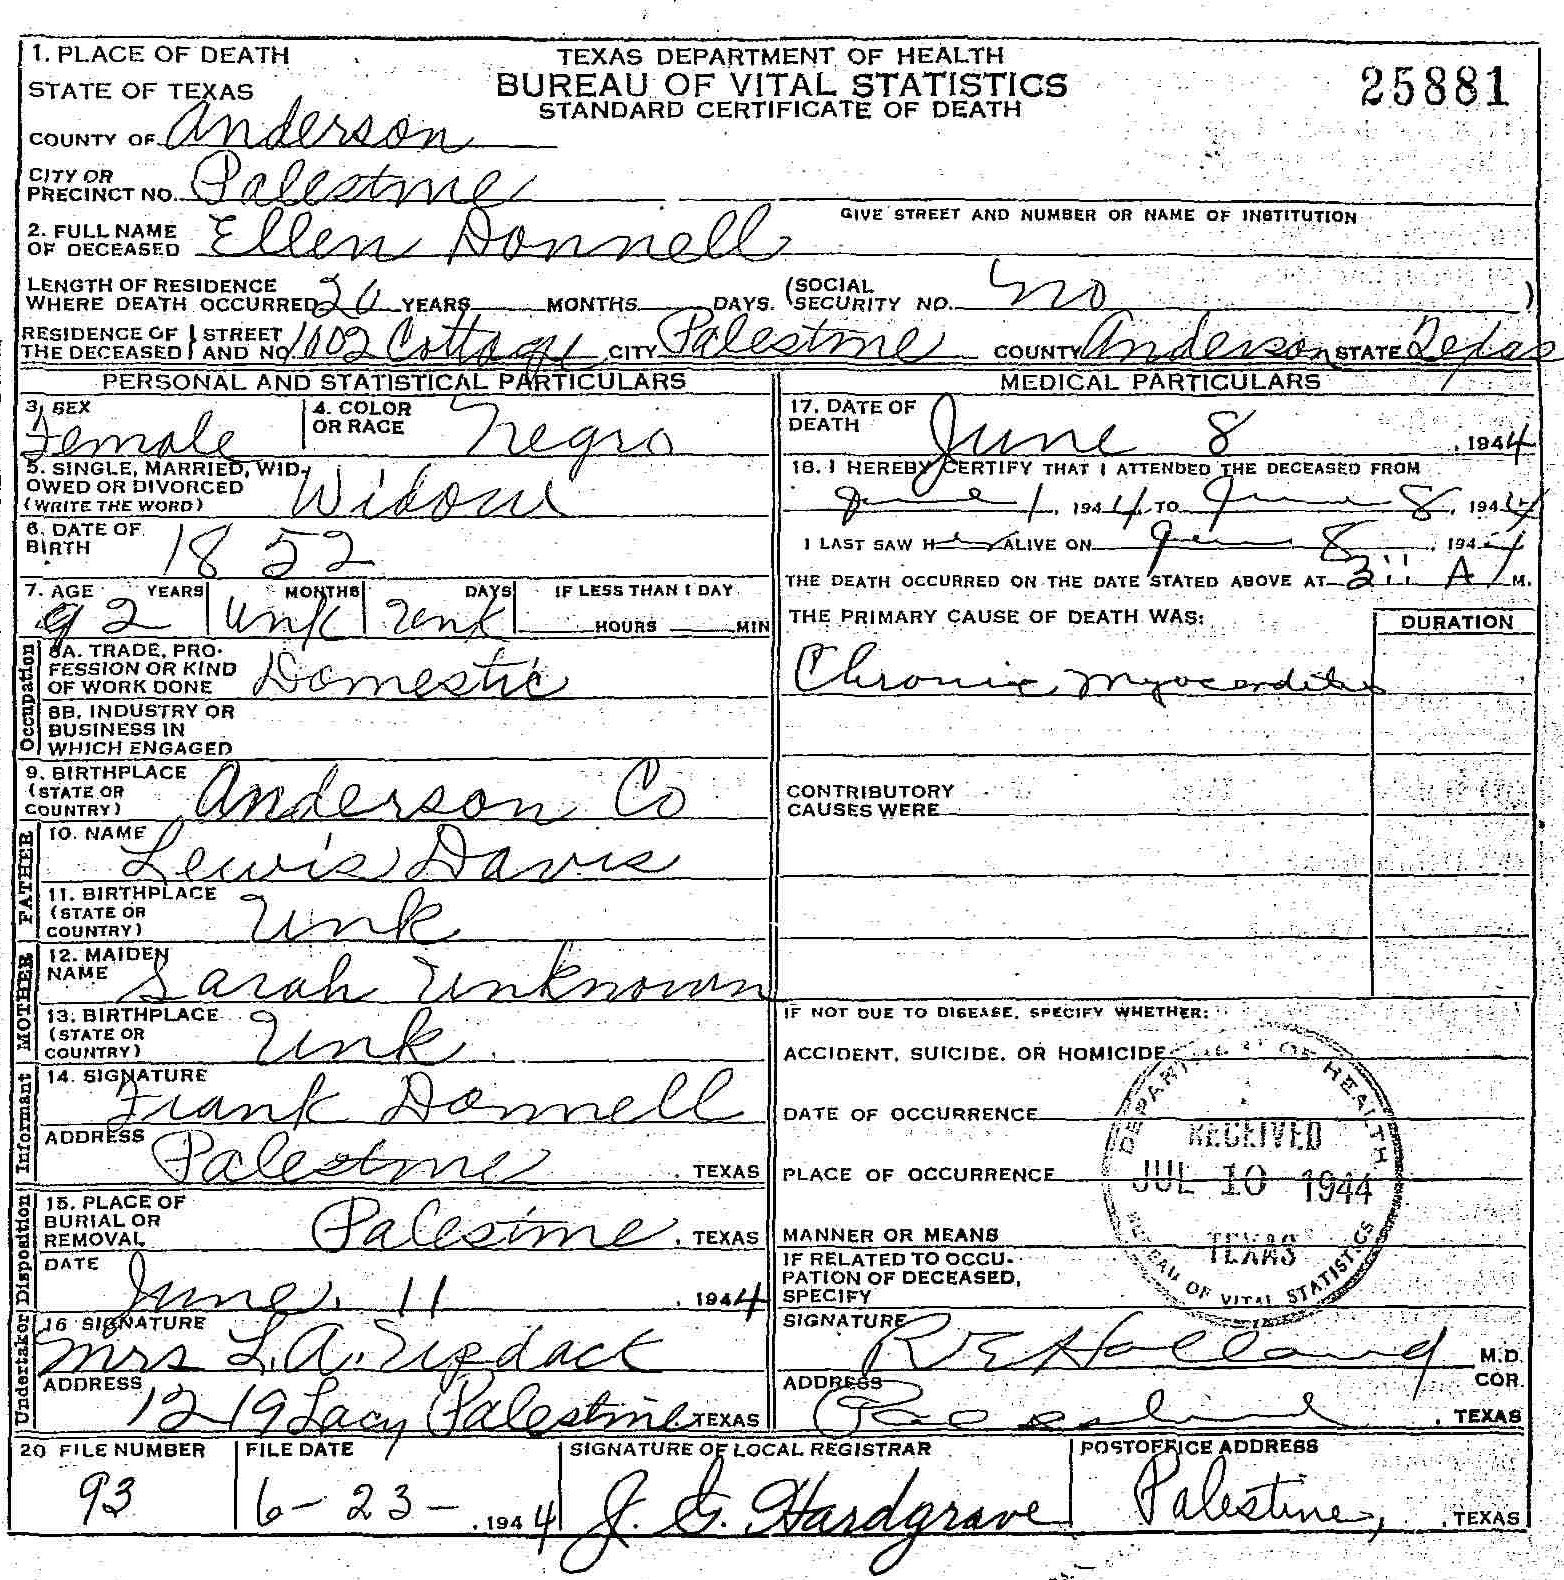 1. PLACE OF DEATH
TEXAS DEPARTMENT OF HEALTH
BUREAU OF VITAL STATISTICS
STANDARD CERTIFICATE OF DEATH
25881
STATE OF TEXAS
COUNTY OF Anderson
CITY OR PRECINCT NO. Palestine
GIVE STREET AND NUMBER OR NAME OF INSTITUTION
2. FULL NAME OF DECEASED Ellen Donnell
LENGTH OF RESIDENCE WHERE DEATH OCCURRED 20 YEARS MONTHS DAYS. (SOCIAL SECURITY NO. no )
RESIDENCE OF THE DECEASED STREET AND NO. 1002 Cottage CITY Palestine COUNTY Anderson STATE Texas
PERSONAL AND STATISTICAL PARTICULARS
3. SEX Female
4. COLOR OR RACE Negro
5. SINGLE, MARRIED, WIDOWED OR DIVORCED (WRITE THE WORD) Widow
6. DATE OF BIRTH 1852
7. AGE YEARS MONTHS DAYS IF LESS THAN 1 DAY
92 Unk Unk HOURS MIN
Occupation
8A. TRADE, PROFESSION OR KIND OF WORK DONE Domestic
8B. INDUSTRY OR BUSINESS IN WHICH ENGAGED
9. BIRTHPLACE (STATE OR COUNTRY) Anderson Co
FATHER
10. NAME Lewis Davis
11. BIRTHPLACE (STATE OR COUNTRY) Unk
MOTHER
12. MAIDEN NAME Sarah Unknown
13. BIRTHPLACE (STATE OR COUNTRY) Unk
Informant
14. SIGNATURE Frank Donnell
ADDRESS Palestine, TEXAS
Disposition
15. PLACE OF BURIAL OR REMOVAL Palestine, TEXAS
DATE June. 11, 1944
Undertaker
16 SIGNATURE Mrs L.A.
ADDRESS 1219 Lacy Palestine, TEXAS
MEDICAL PARTICULARS
17. DATE OF DEATH June 8, 1944
18. I HEREBY CERTIFY THAT I ATTENDED THE DECEASED FROM
June 1, 1944, TO June 8, 1944
I LAST SAW Her ALIVE ON June 8, 1944
THE DEATH OCCURRED ON THE DATE STATED ABOVE AT A M.
THE PRIMARY CAUSE OF DEATH WAS: DURATION
Chronic myocarditis
CONTRIBUTORY CAUSES WERE
IF NOT DUE TO DISEASE, SPECIFY WHETHER:
ACCIDENT, SUICIDE, OR HOMICIDE
DATE OF OCCURRENCE
PLACE OF OCCURRENCE
MANNER OR MEANS
IF RELATED TO OCCUPATION OF DECEASED, SPECIFY
DEPARTMENT OF HEALTH
RECEIVED
JUL 10 1944
TEXAS
BUREAU OF VITAL STATISTICS
SIGNATURE R E Holland M.D. COR.
ADDRESS Palestine, TEXAS
20 FILE NUMBER 93
FILE DATE 6-23-, 1944
SIGNATURE OF LOCAL REGISTRAR J. G. Hardgrave
POSTOFFICE ADDRESS Palestine, TEXAS